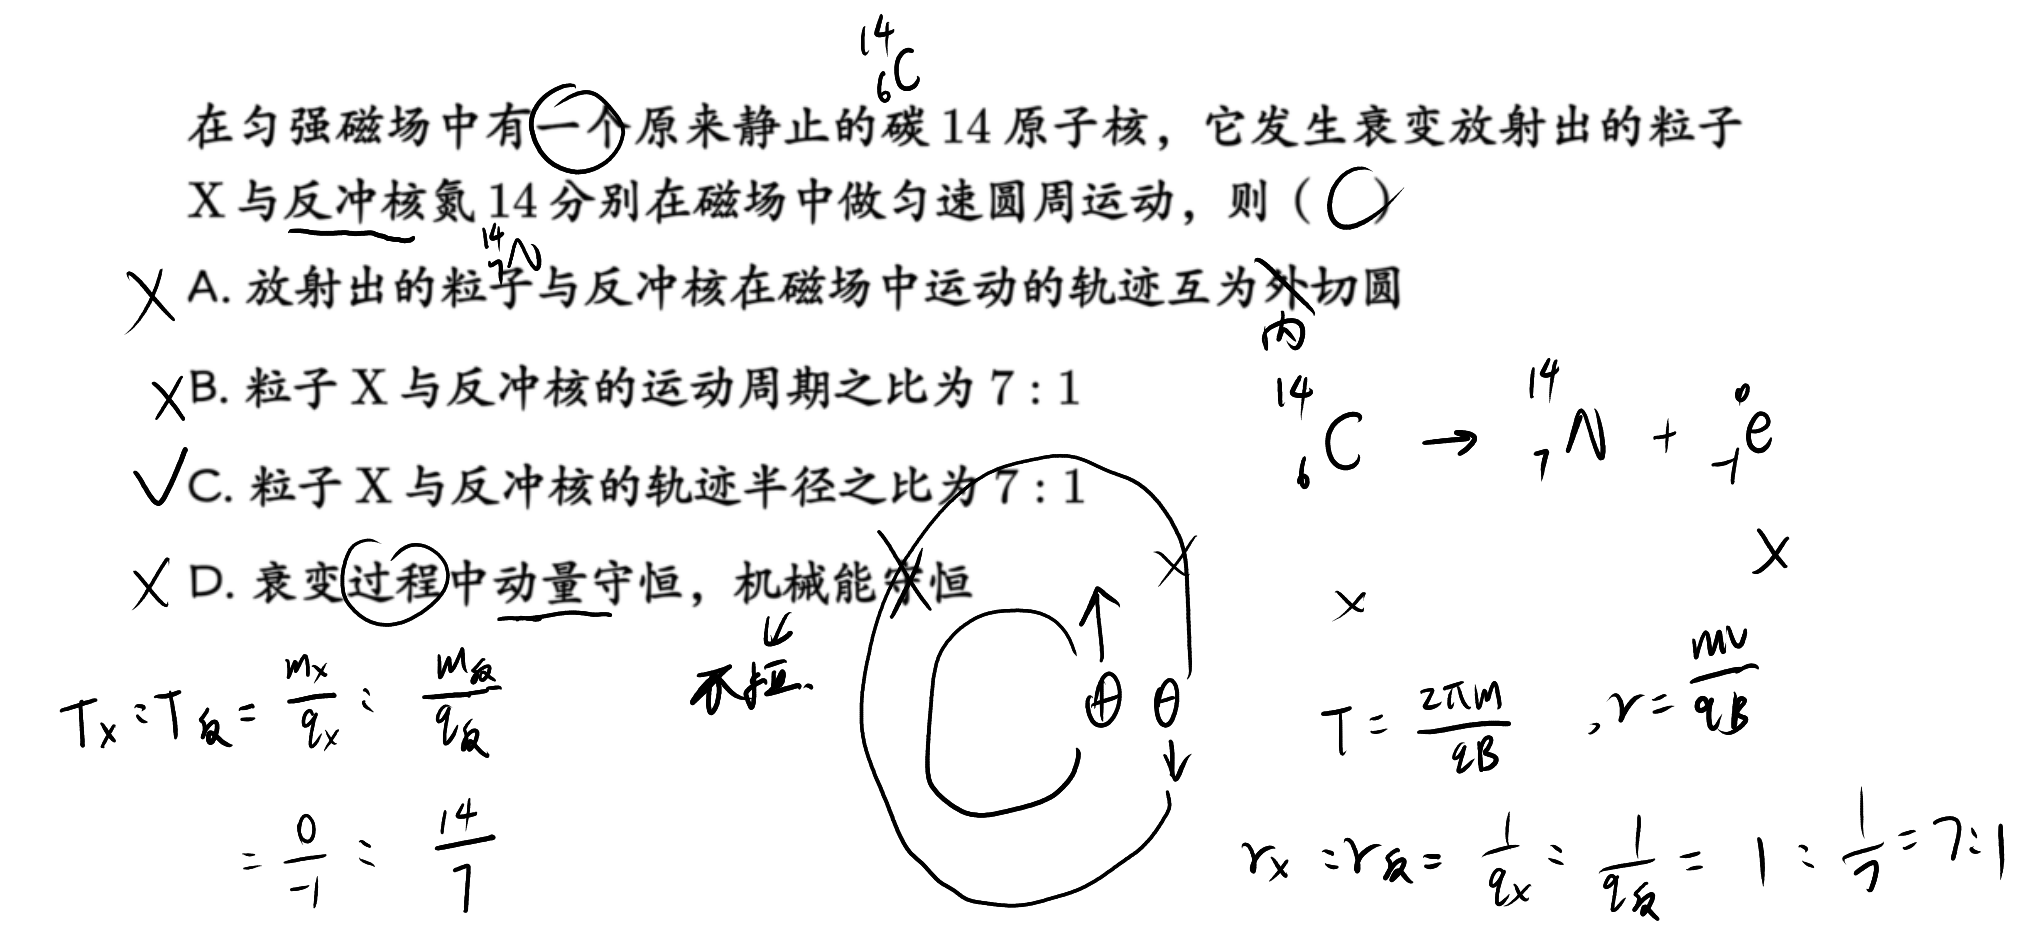 ¹⁴₆C
在匀强磁场中有一个原来静止的碳 14 原子核，它发生衰变放射出的粒子
X 与反冲核氮 14 分别在磁场中做匀速圆周运动，则（C）
¹⁴₇N
× A. 放射出的粒子与反冲核在磁场中运动的轨迹互为外切圆
内
× B. 粒子 X 与反冲核的运动周期之比为 7 : 1
¹⁴₆C → ¹⁴₇N + ⁰₋₁e
✓ C. 粒子 X 与反冲核的轨迹半径之比为 7 : 1
× D. 衰变过程中动量守恒，机械能守恒
T_X : T_反 = m_X/q_X : m_反/q_反
⊕ ⊖
T = 2πm/qB , r = mv/qB
= 0/-1 : 14/7
r_X : r_反 = 1/q_X : 1/q_反 = 1 : 1/7 = 7:1